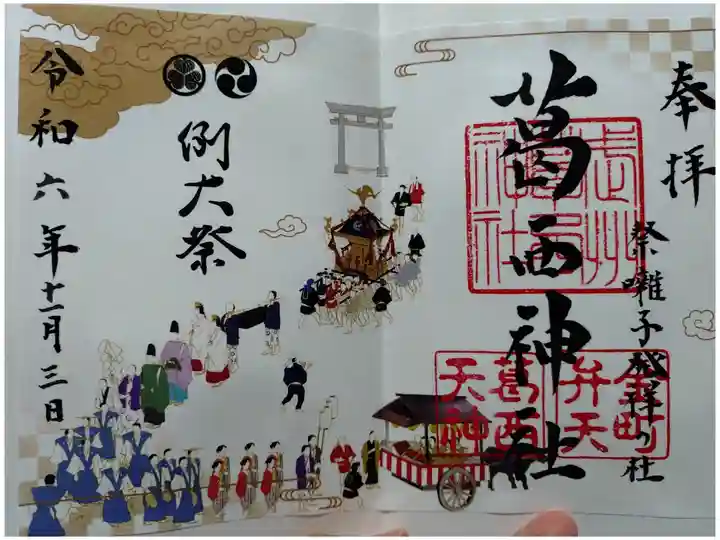 奉拝
祭囃子発祥の社
葛西神社
武州
葛西神社
金町
弁天
葛西
天神
例大祭
令和六年十一月三日